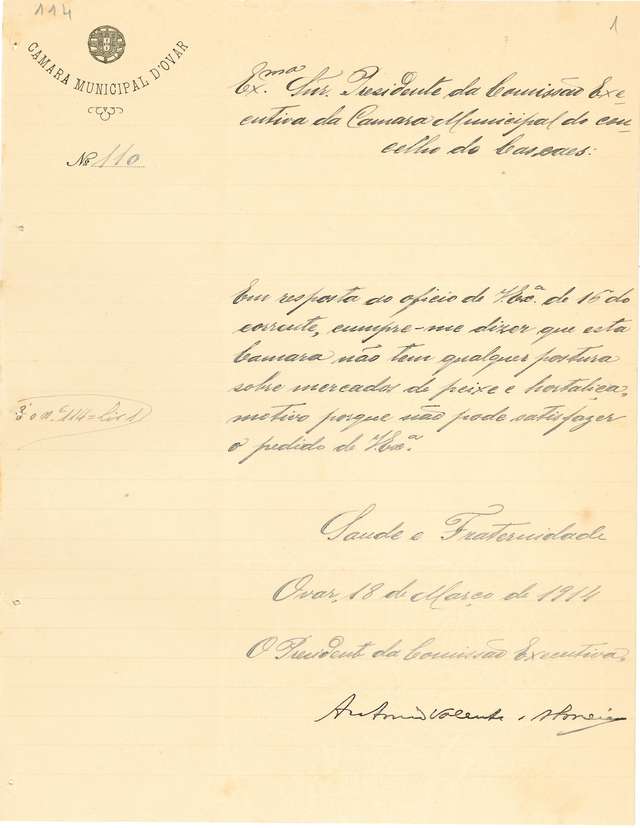 114
1
CAMARA MUNICIPAL D'OVAR
Nº 110
Ex.ma Snr. Presidente da Comissão Exe-
cutiva da Camara Municipal do con-
celho de Cascaes:
Em resposta ao oficio de V.Ex.ª de 15 do
corrente, cumpre-me dizer que esta
Camara não tem qualquer postura
sobre mercados de peixe e hortaliça,
motivo porque não pode satisfazer
o pedido de V.Ex.ª.
É o n.º 114 = Liv 1
Saude e Fraternidade
Ovar, 18 de Março de 1914
O Presidente da Comissão Executiva,
Antonio Valente